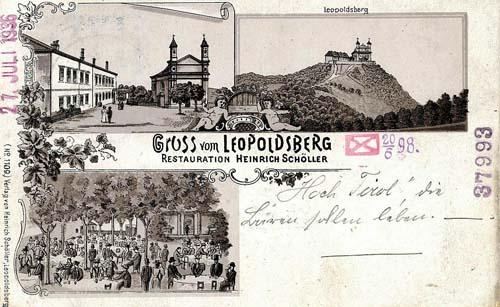 Leopoldsberg
27. JULI 1936
GRUSS VOM LEOPOLDSBERG
RESTAURATION HEINRICH SCHÖLLER
20/6 98.
34993
Hoch Tirol" die
sollen leben.
(No 1109) Verlag von Heinrich Schöller, Leopoldsberg